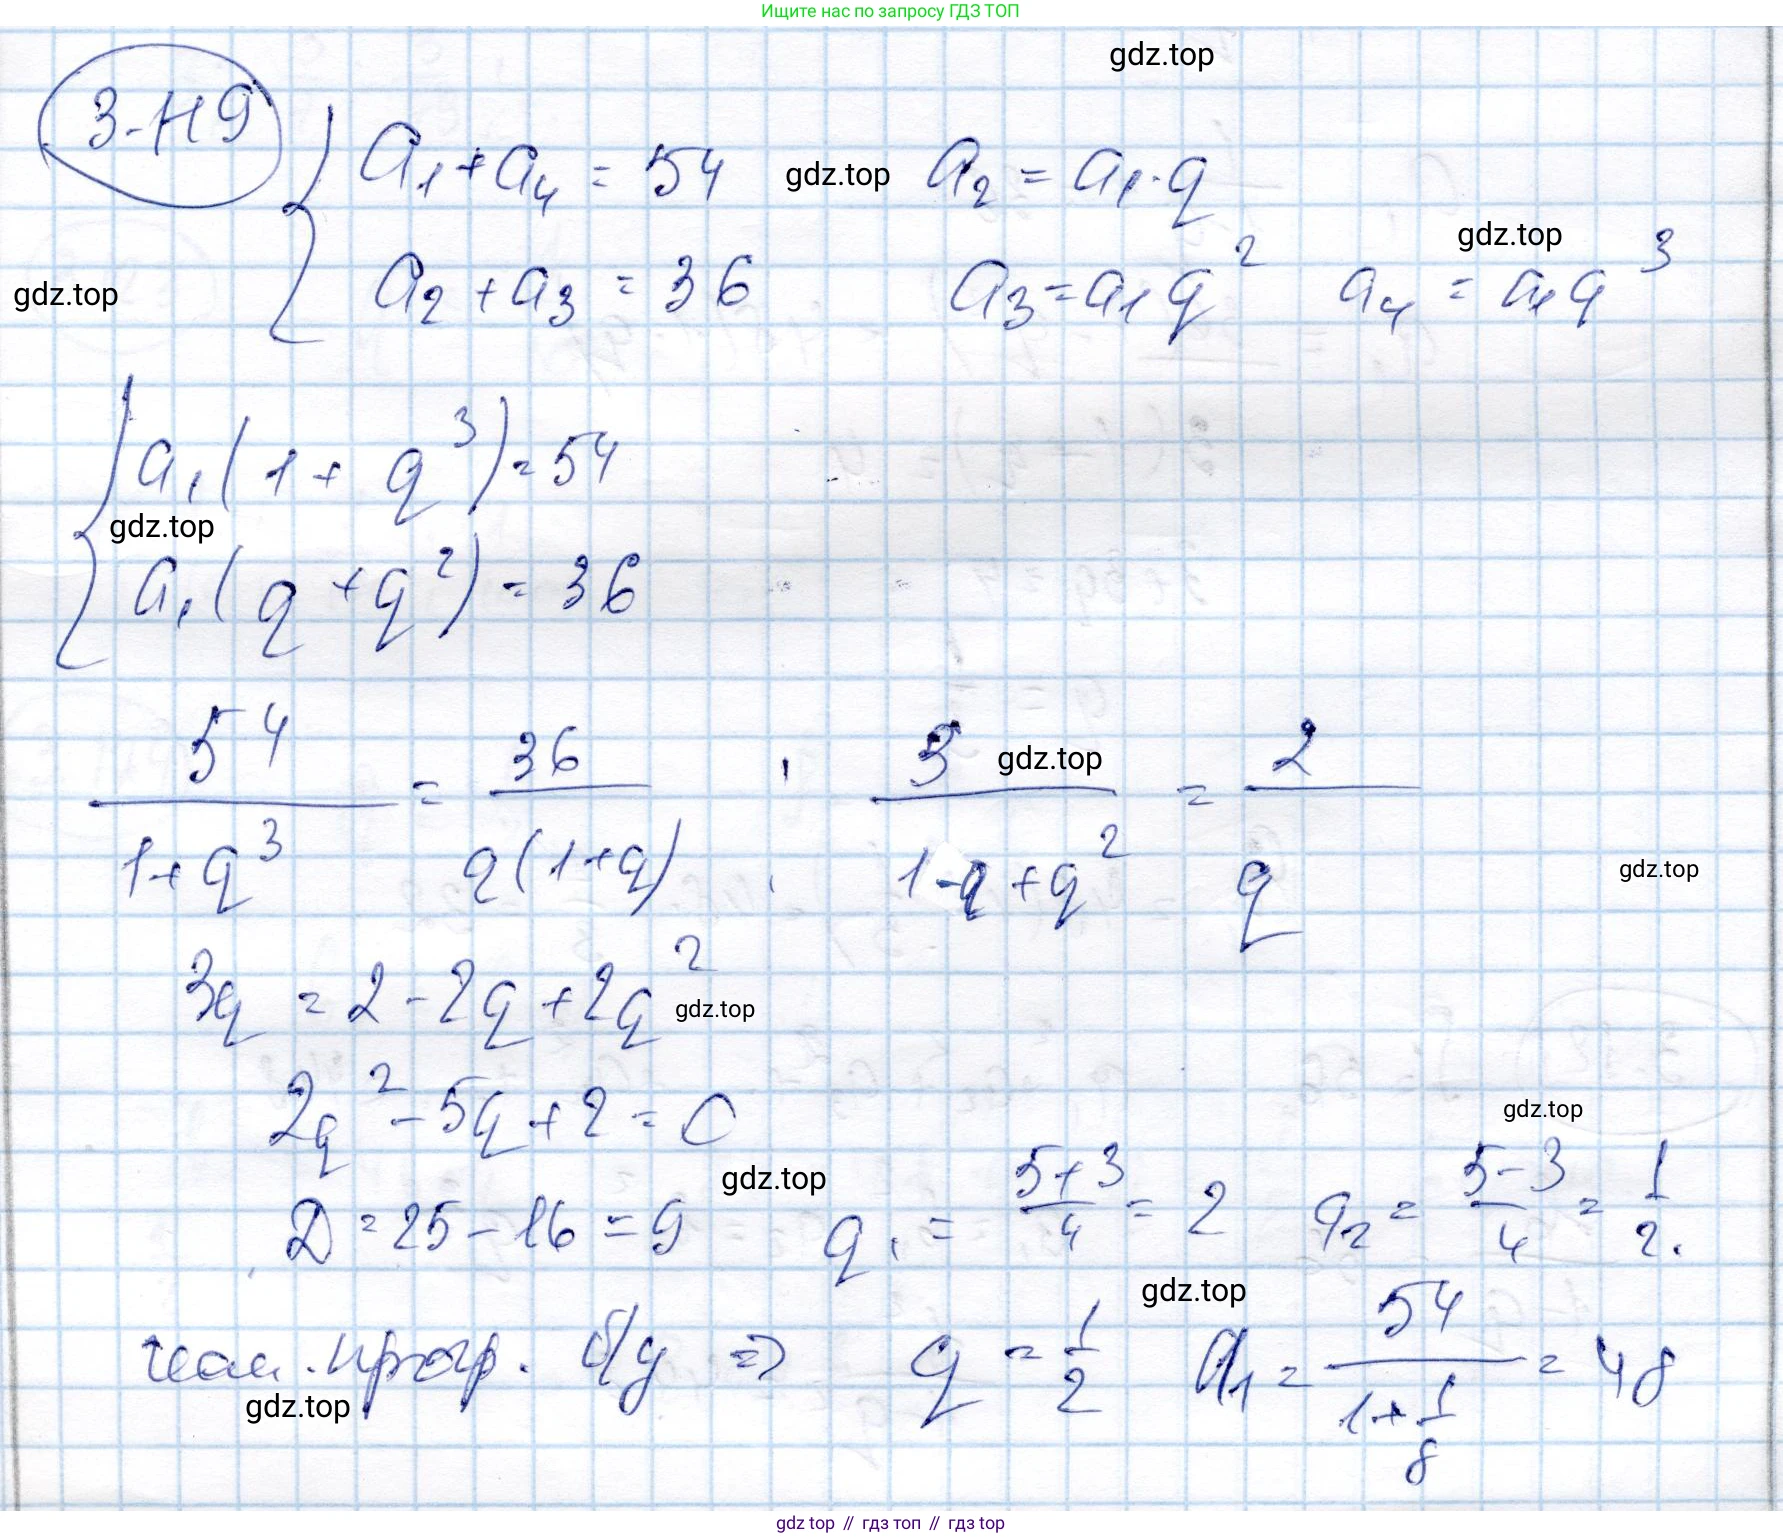 Ищите нас по запросу ГДЗ ТОП
gdz.top
3-Н9
a₁ + a₄ = 54 gdz.top a₂ = a₁·q
gdz.top
a₂ + a₃ = 36 a₃ = a₁q² a₄ = a₁q³
gdz.top
a₁(1 + q³) = 54
gdz.top
a₁(q + q²) = 36
54/(1+q³) = 36/(q(1+q)) ; 3/(1-q+q²) = 2/q
gdz.top
gdz.top
3q = 2 - 2q + 2q²
gdz.top
2q² - 5q + 2 = 0
gdz.top
gdz.top
D = 25 - 16 = 9 q₁ = (5+3)/4 = 2 q₂ = (5-3)/4 = 1/2.
gdz.top
геом. прогр. б/у ⇒ q = 1/2 a₁ = 54/(1+1/8) = 48
gdz.top
gdz top // гдз топ // гдз top